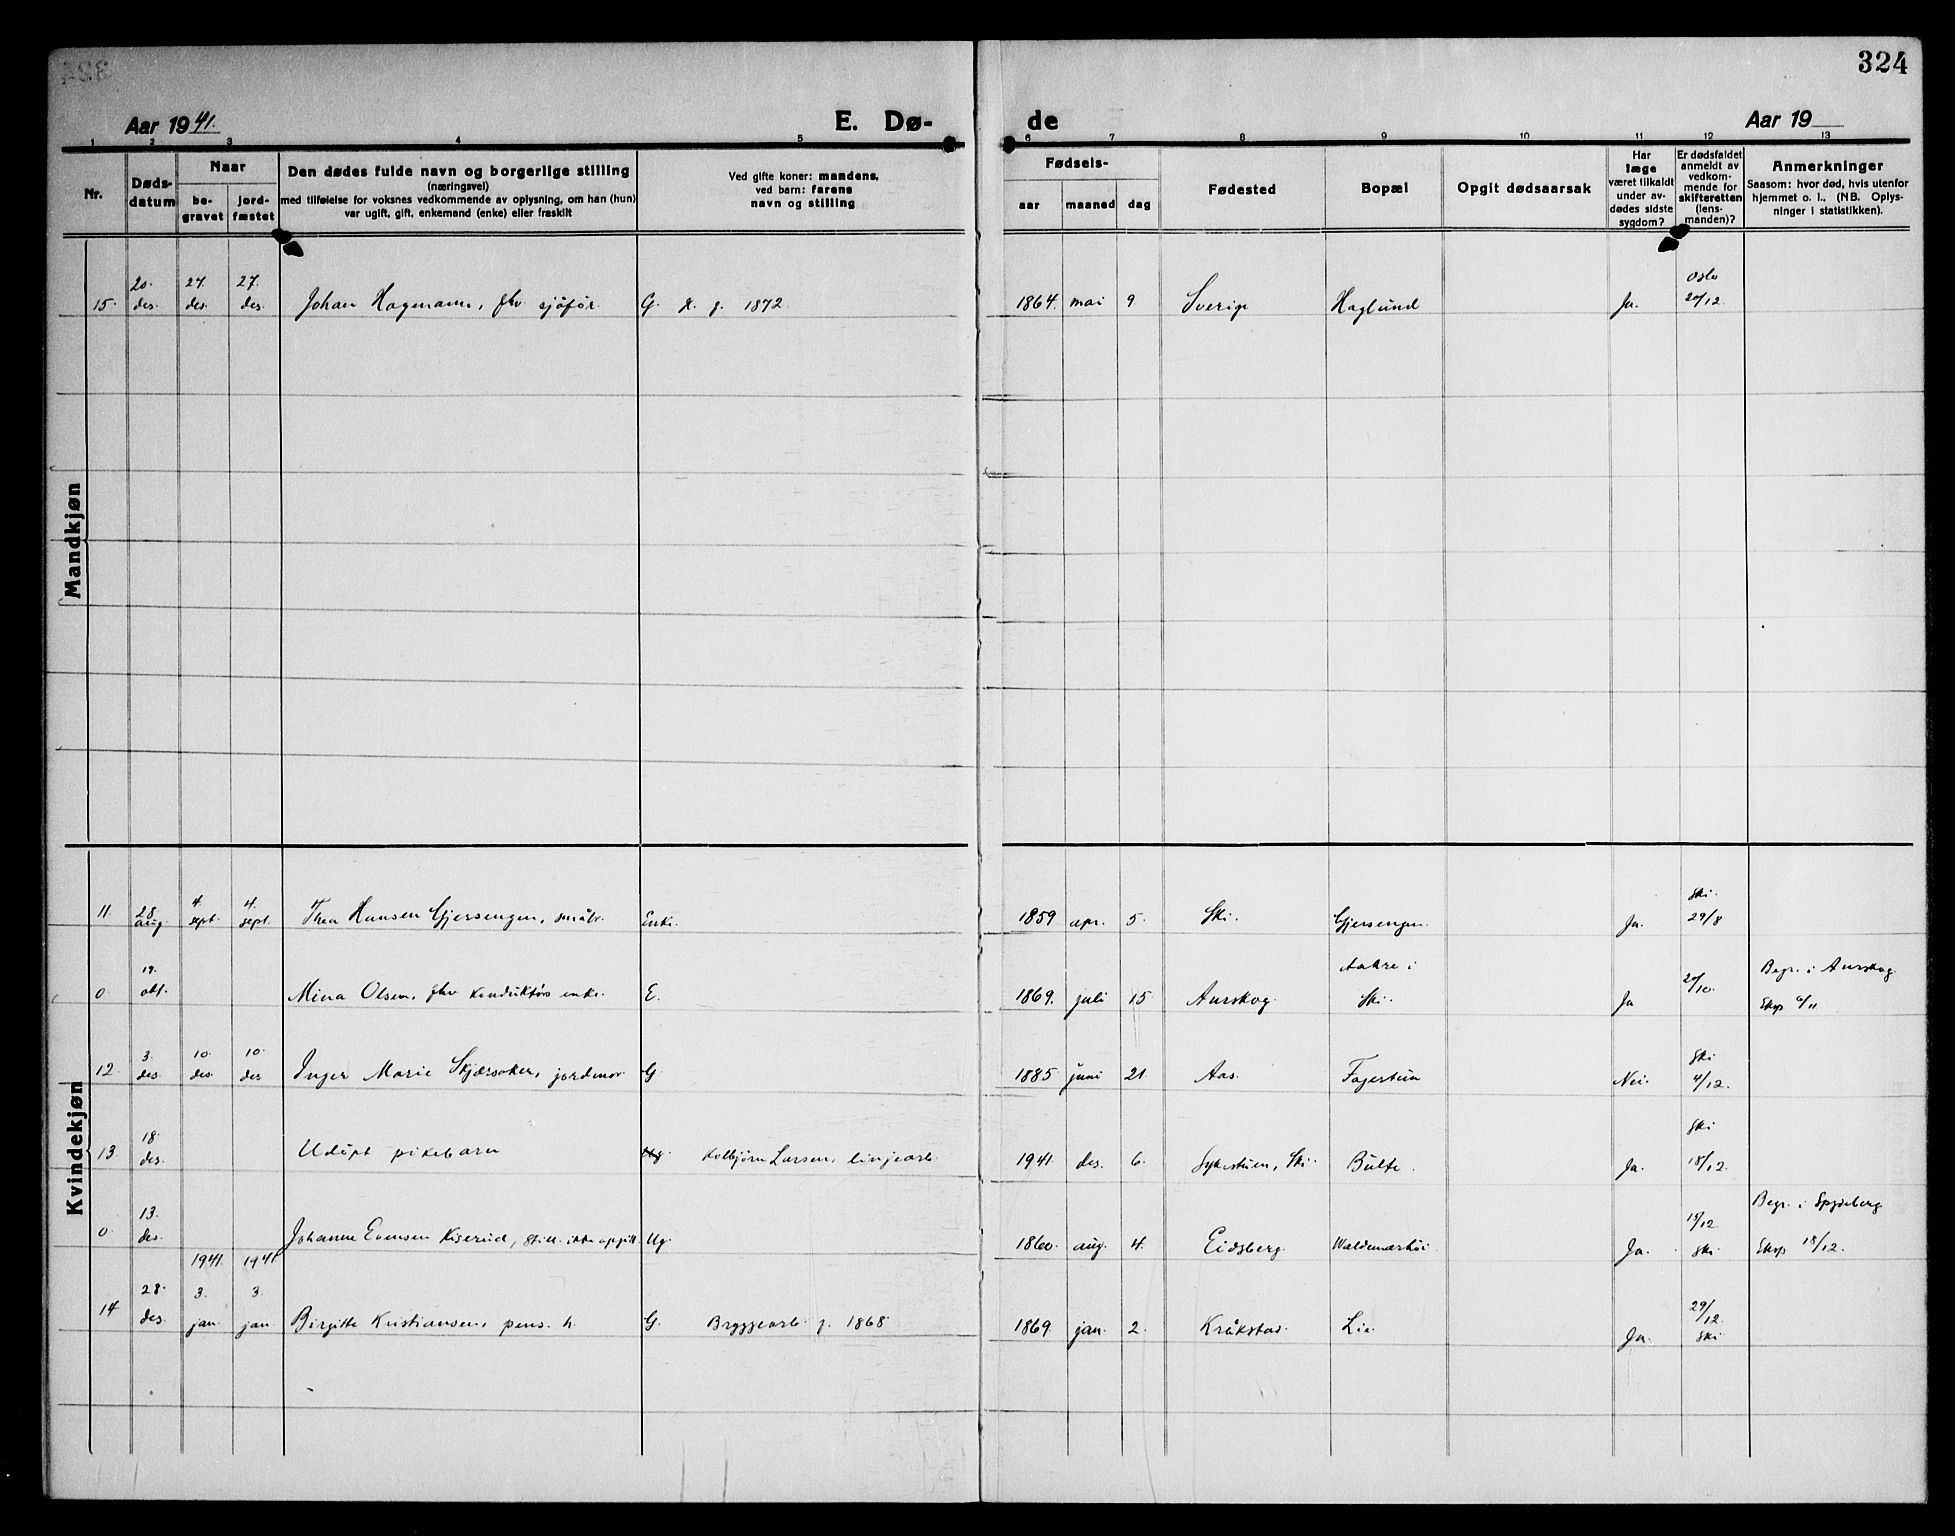 324
Aar 1941.
E. Dø-
de
Aar 19
1 2 3 4 5 6 7 8 9 10 11 12 13
Nr.
Døds-
datum
Naar
be-
gravet
jord-
fæstet
Den dødes fulde navn og borgerlige stilling
(næringsvei)
med tilføielse for voksnes vedkommende av oplysning, om han (hun)
var ugift, gift, enkemand (enke) eller fraskilt
Ved gifte koner: mandens,
ved barn: farens
navn og stilling
Fødsels-
aar
maaned
dag
Fødested
Bopæl
Opgit dødsaarsak
Har
læge
været tilkaldt
under av-
dødes sidste
sygdom?
Er dødsfaldet
anmeldt av
vedkom-
mende for
skifteretten
(lens-
manden)?
Anmerkninger
Saasom: hvor død, hvis utenfor
hjemmet o. l., (NB. Oplys-
ninger i statistikken).
Mandkjøn
20. 27. 27. Oslo
15. des. des. des. Johan Hagmann, fhv sjåfør G. f. 1872 1864. mai 9 Sverige Haglund Ja. 20/12
Kvindekjøn
28. 4. 4. Ski
11. aug. sept. sept. Thea Hansen Gjersengen, småbr. Enke. 1859 apr. 5. Ski. Gjersengen. Ja. 29/8
19. Aakre i Begr. i Aurskog
0 okt. Mina Olsen, fhv konduktørs enke. E. 1869. juli 15 Aurskog. Ski. Ja 20/10. Eksp 6/11
3. 10. 10. Ski
12. des. des. des Inger Marie Skjærsaker, jordmor G. 1885 juni 21. Aas. Fagertun Nei. 4/12.
18. Ski
13 des. Udøpt pikebarn Kolbjørn Larsen, linjearb. 1941. des. 6. Sykestuen, Ski. Bulte. Ja. 18/12.
13. 15/12. Begr. i Spydeberg
0. des. Johanne Evensen Kiserud, still. ikke opgitt Ug. 1860. aug. 4. Eidsberg. Waldemarhøi. Ja. Ski. Eksp 18/12.
1941. 1941
28. 3. 3. 29/12.
14 des. jan. jan Birgitte Kristiansen, pens. h. G. Bryggearb. f. 1868. 1869. jan. 2. Kråkstad. Lie. Ja. Ski